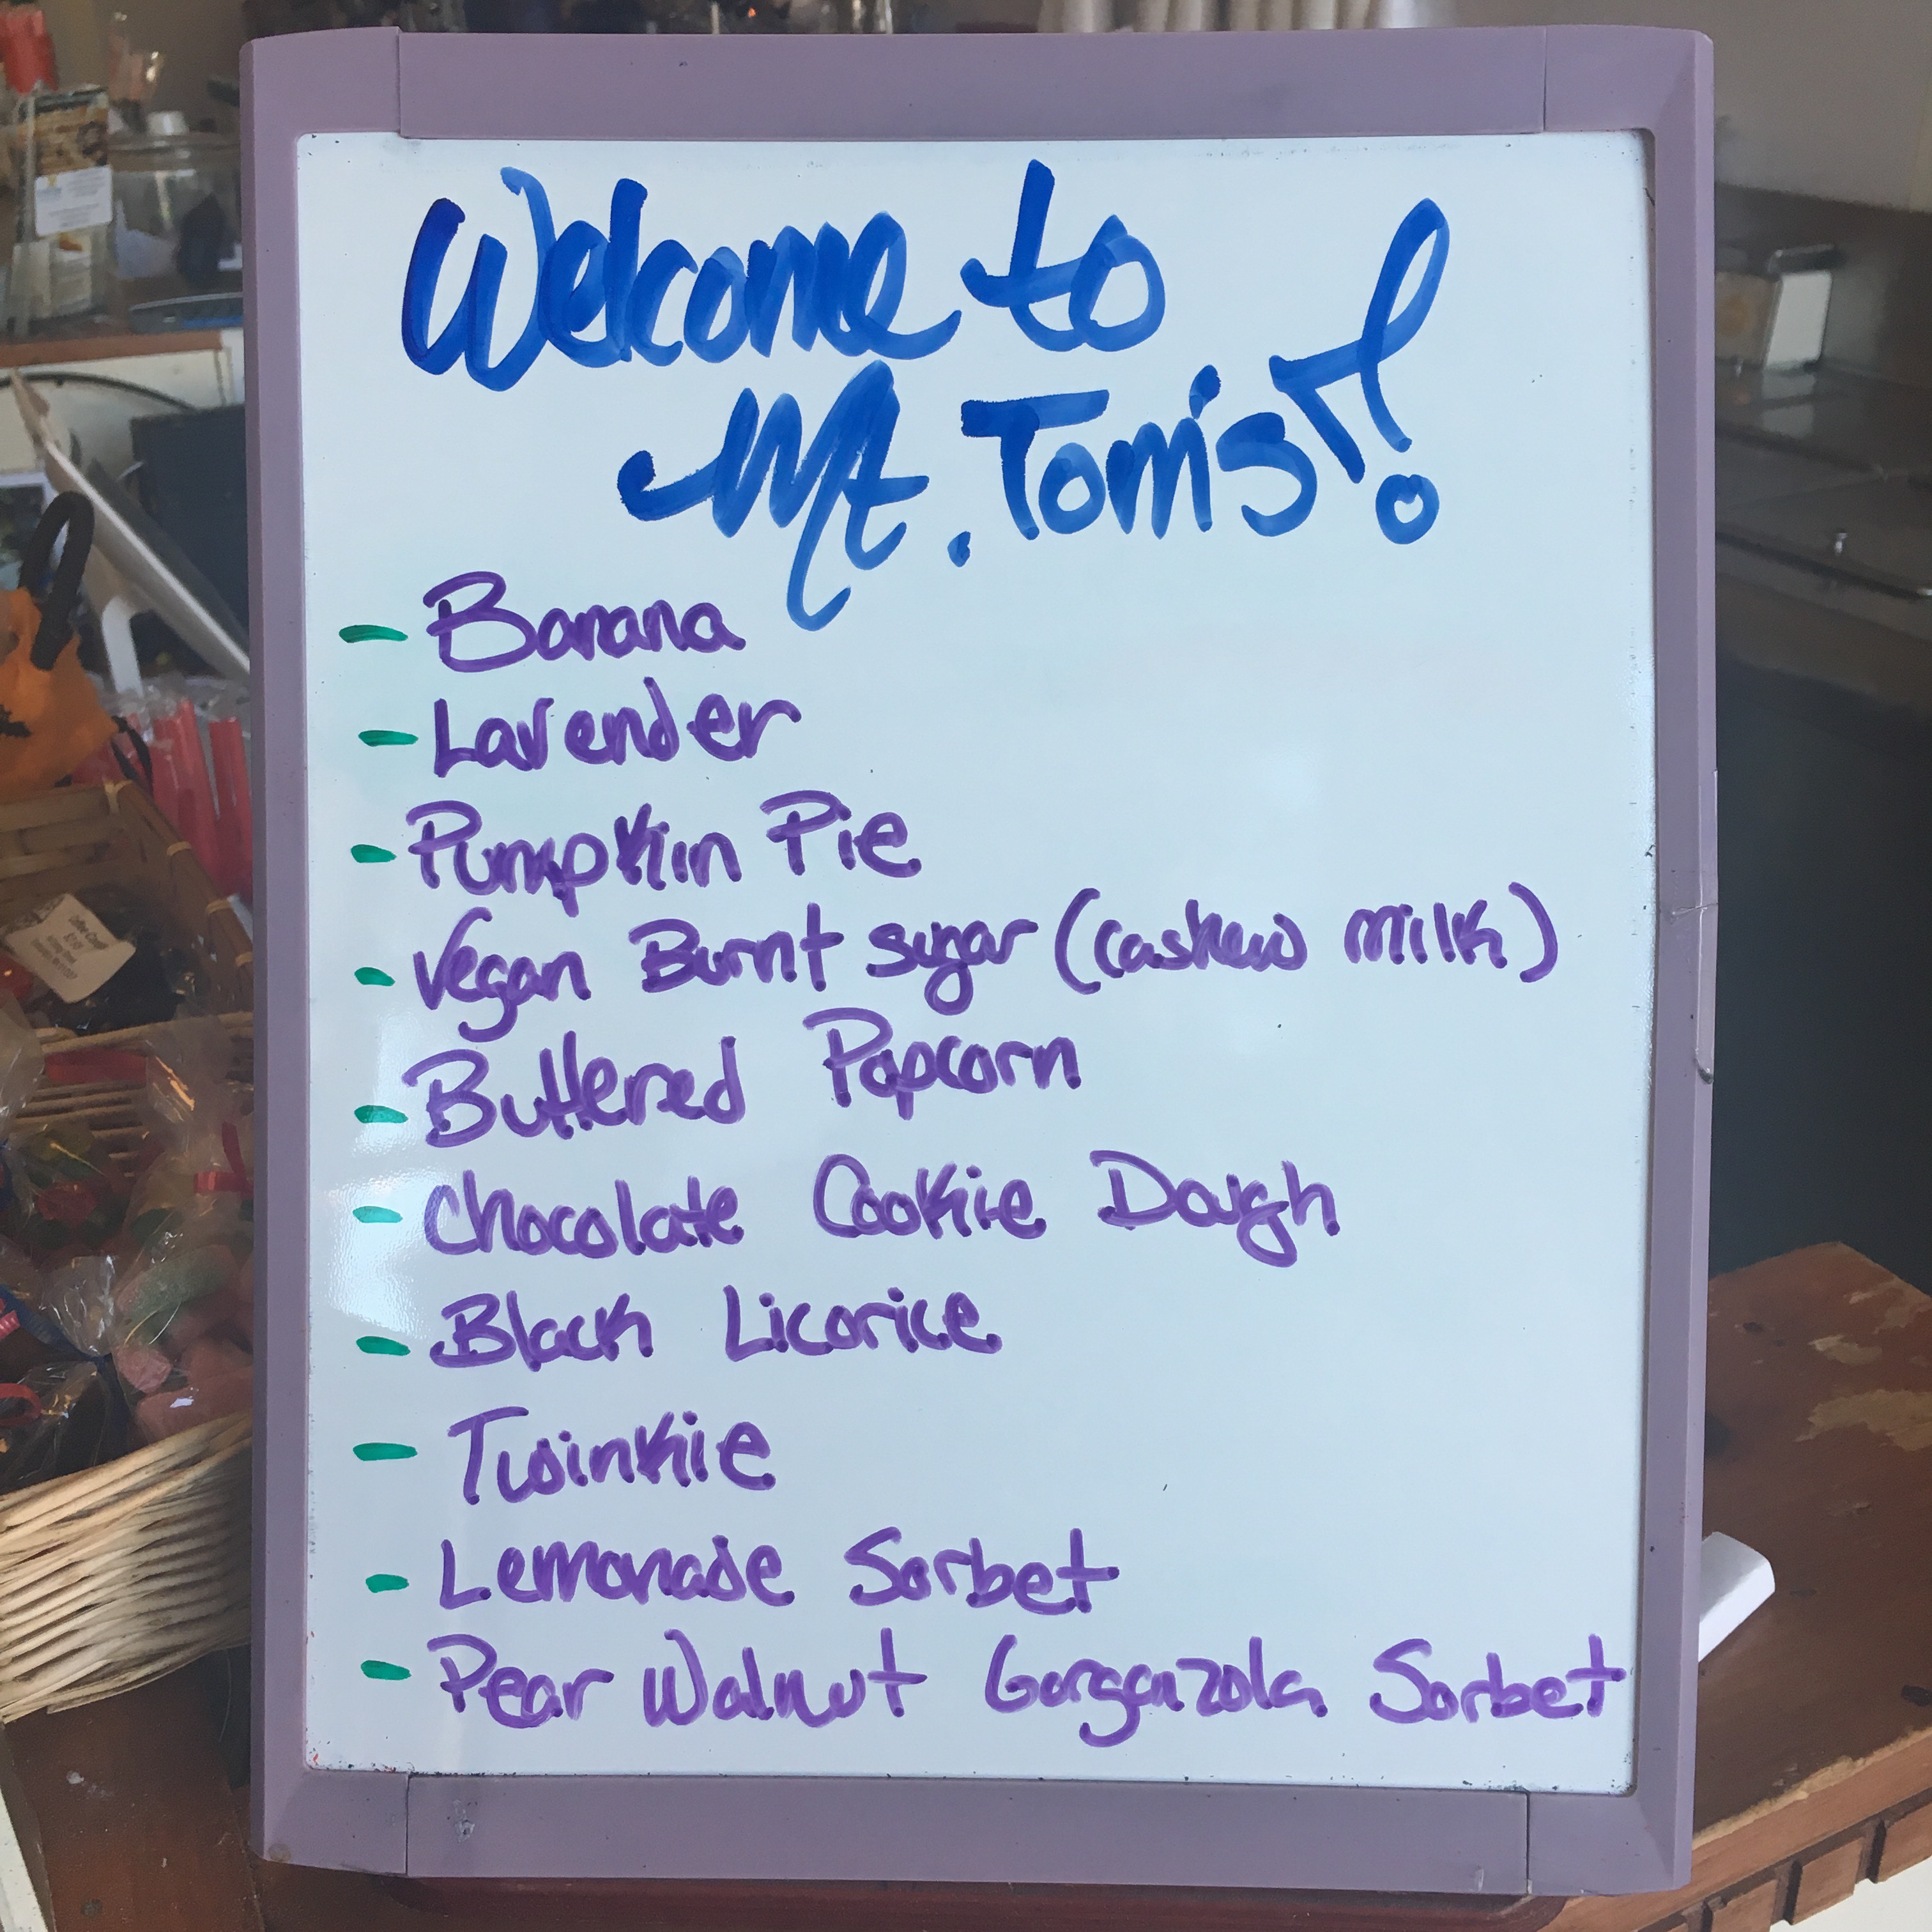 Welcome to
Mt. Tom's!
- Banana
- Lavender
- Pumpkin Pie
- Vegan Burnt sugar (cashew milk)
- Buttered Popcorn
- Chocolate Cookie Dough
- Black Licorice
- Twinkie
- Lemonade Sorbet
- Pear Walnut Gorgonzola Sorbet